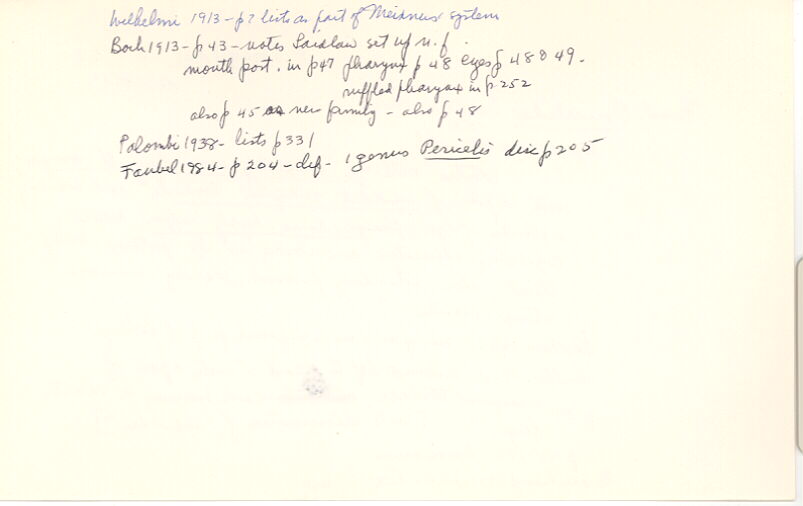 Wilhelmi 1913 - p 7 lists as part of Meixners system
Bock 1913 - p 43 - notes Laidlaw set up n.f.
mouth post. in p 47 pharynx p 48 eyes p 48 & 49.
ruffled pharynx in p 252
also p 45 as new family - also p 48
Palombi 1938 - lists p 331
Faubel 1984 - p 204 - def - 1 genus Pericelis disc p 205